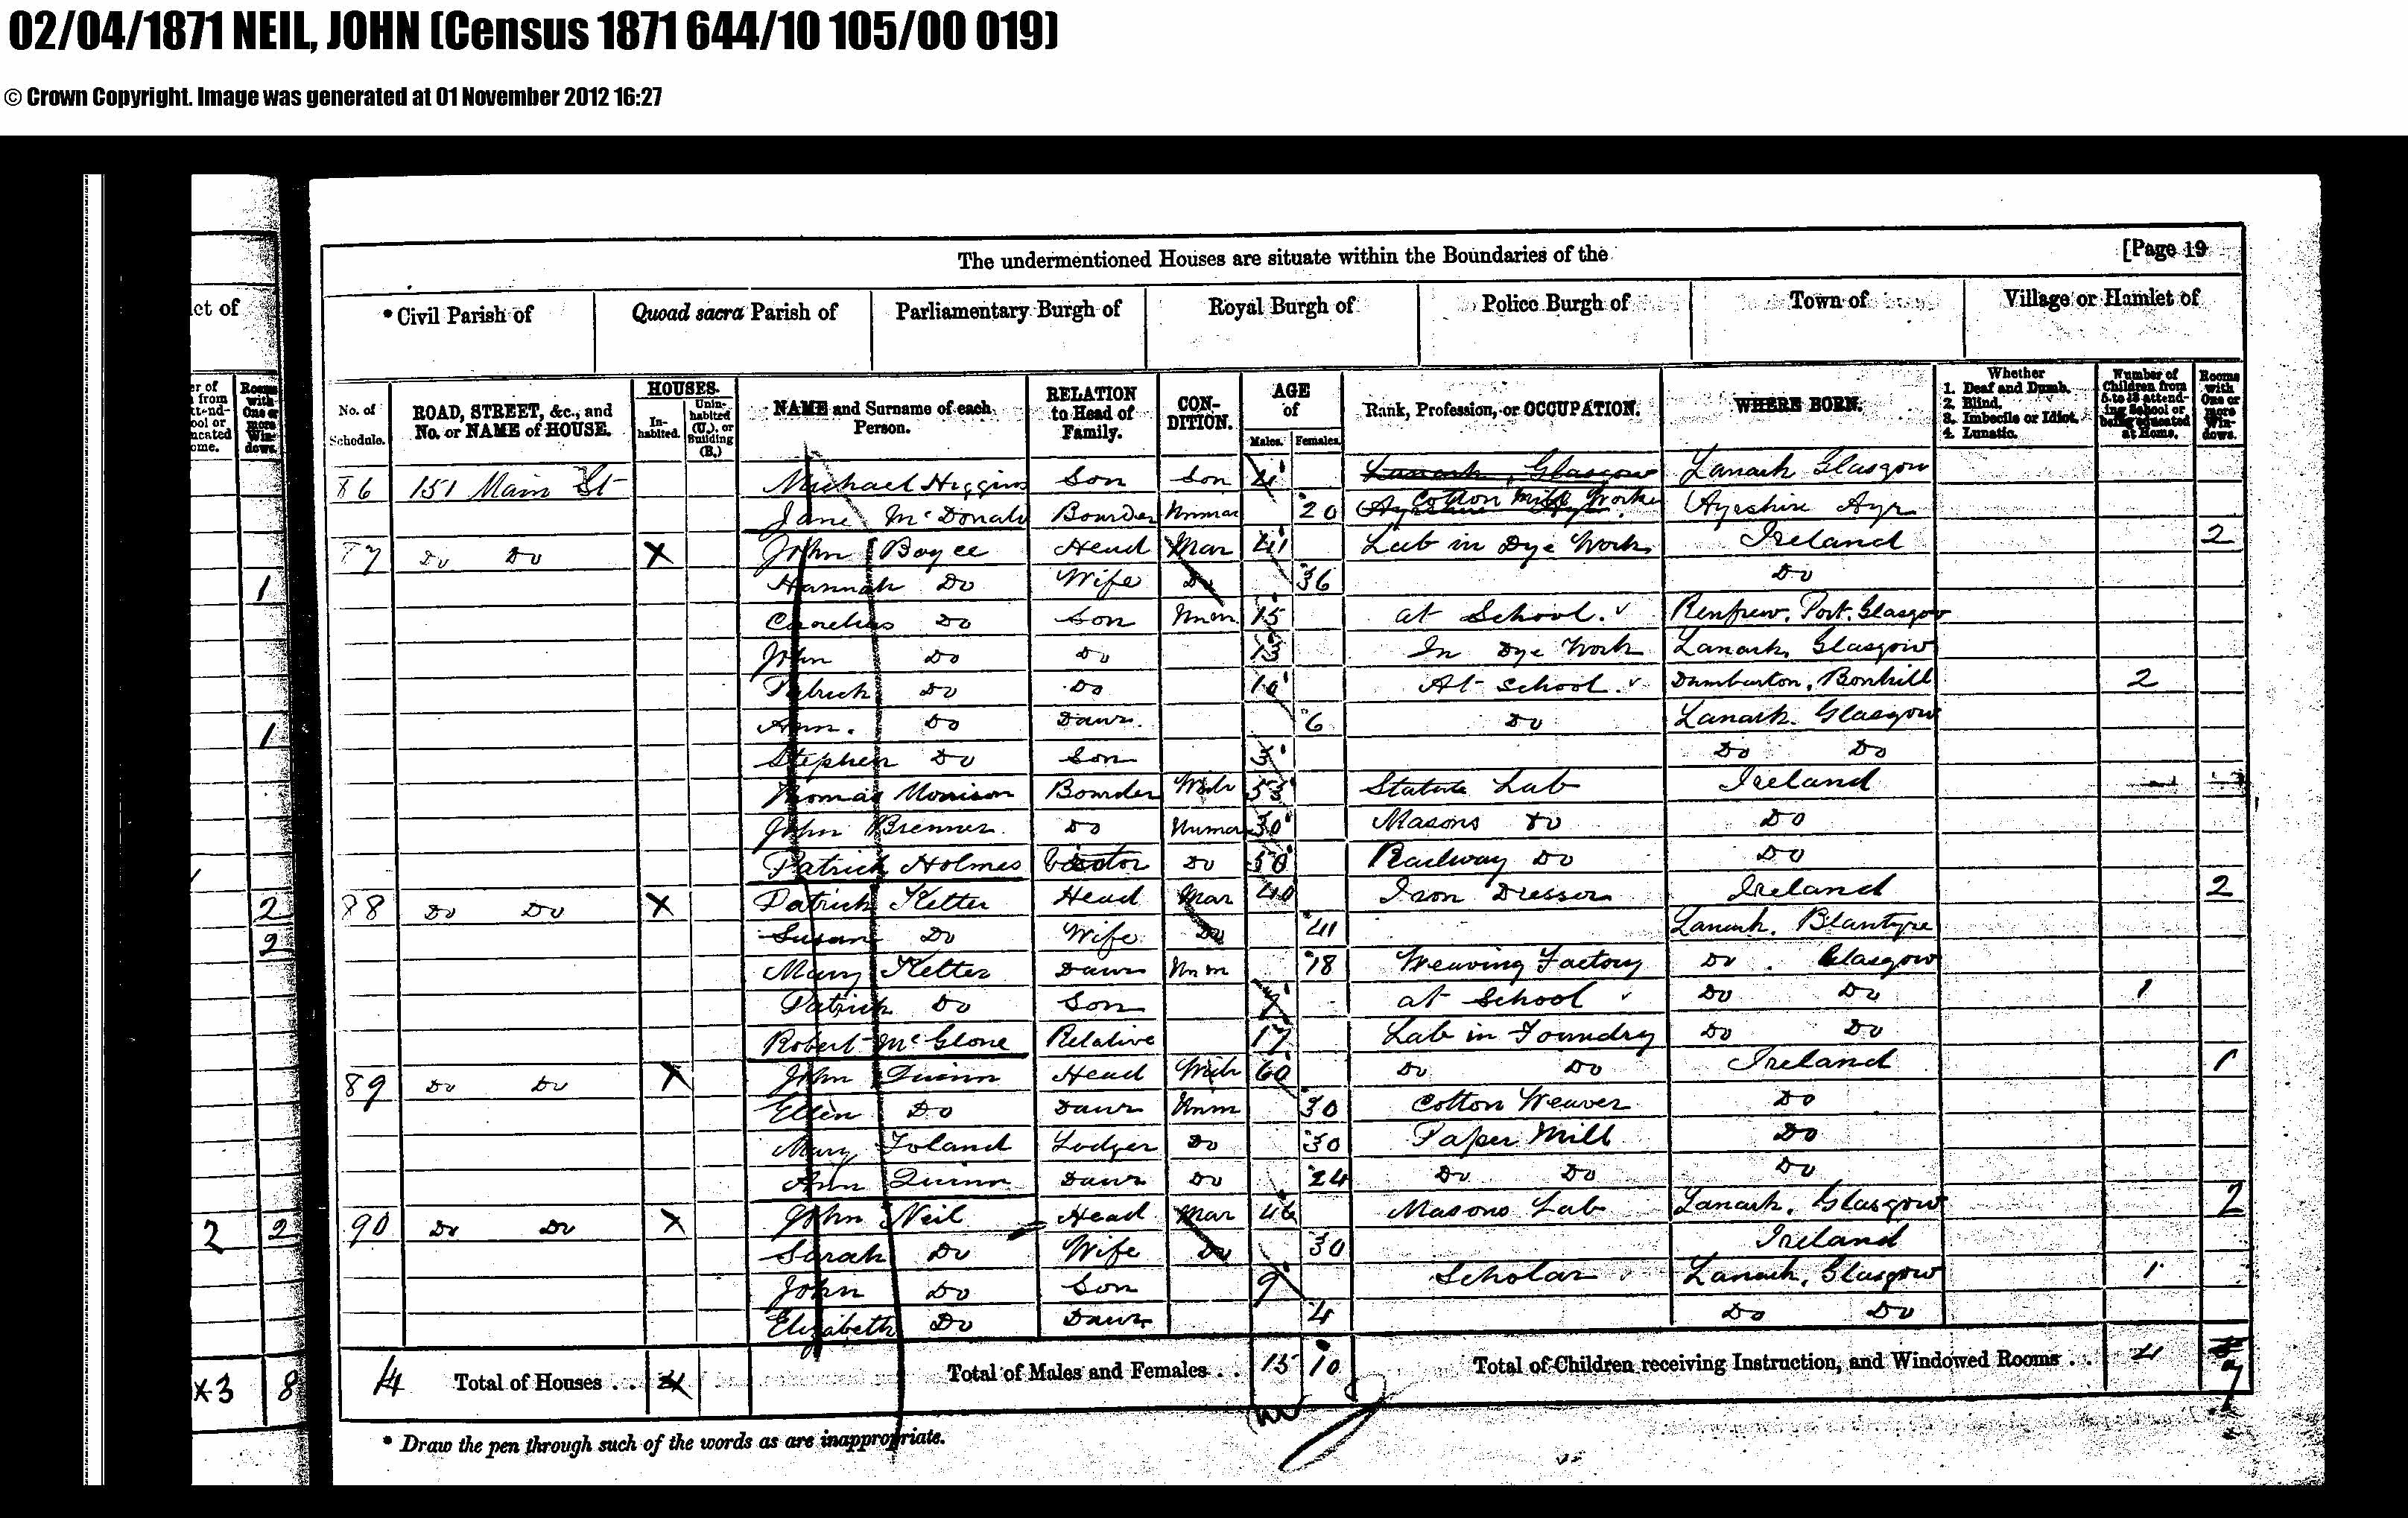 02/04/1871 NEIL, JOHN (Census 1871 644/10 105/00 019)
© Crown Copyright. Image was generated at 01 November 2012 16:27
The undermentioned Houses are situate within the Boundaries of the [Page 19
* Civil Parish of Quoad sacra Parish of Parliamentary Burgh of Royal Burgh of Police Burgh of Town of Village or Hamlet of
No. of Schedule. ROAD, STREET, &c., and No. or NAME of HOUSE. HOUSES. Inhabited. Uninhabited (U.), or Building (B.) NAME and Surname of each Person. RELATION to Head of Family. CONDITION. AGE of Males. Females. Rank, Profession, or OCCUPATION. WHERE BORN. Whether 1. Deaf and Dumb. 2. Blind. 3. Imbecile or Idiot. 4. Lunatic. Number of Children from 5 to 13 attending School or being educated at Home. Rooms with One or more Windows.
86 151 Main St Michael Higgins Son Son Lanark, Glasgow Lanark Glasgow
Jane McDonald Bourder Unmar 20 Cotton Mill Worker Ayrshire Ayr
87 Do Do X John Boyce Head Mar 41 Lab in Dye Work Ireland 2
Hannah Do Wife Do 36 Do
Cornelius Do Son Unm 15 at School. Renfrew. Port. Glasgow
John Do Do 13 In Dye Work Lanark. Glasgow
Patrick Do Do 10 At School. Dumbarton. Bonhill 2
Ann. Do Dawr. 6 Do Lanark. Glasgow
Stephen Do Son 3 Do Do
Thomas Morrison Bourder Widr 55 Statute Lab Ireland
John Brenner Do Unmar 30 Masons Do Do
Patrick Holmes Visitor Do 50 Railway Do Do
88 Do Do X Patrick Kelter Head Mar 40 Iron Dresser Ireland 2
Susan Do Wife Do 41 Lanark. Blantyre
Mary Kelter Dawr Unm 18 Weaving Factory Do. Glasgow
Patrick Do Son 7 at School Do Do 1
Robert McGlone Relative 17 Lab in Foundry Do Do
89 Do Do X John Quinn Head Widr 60 Do Do Ireland 1
Ellen Do Dawr Unm 30 Cotton Weaver Do
Mary Toland Lodger Do 30 Paper Mill Do
Ann Quinn Dawr Do 24 Do Do Do
90 Do Do X John Neil Head Mar 46 Masons Lab Lanark. Glasgow 2
Sarah Do Wife Do 30 Ireland
John Do Son 9 Scholar Lanark, Glasgow 1
Elizabeth Do Dawr 4 Do Do
4 Total of Houses . . Total of Males and Females . . 15 10 Total of Children receiving Instruction, and Windowed Rooms . . 4 7
* Draw the pen through such of the words as are inappropriate.